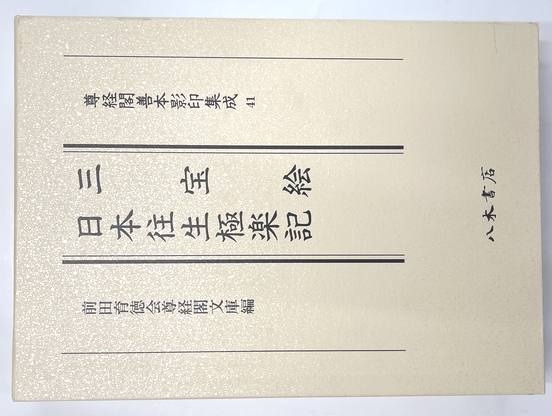 尊経閣善本影印集成 41
三宝絵
日本往生極楽記
前田育徳会尊経閣文庫編
八木書店